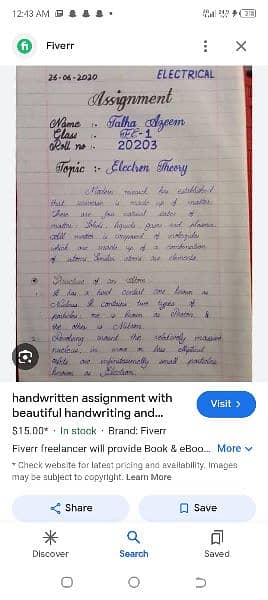 12:43 AM
Fiverr
25-06-2020 ELECTRICAL
Assignment
Name :- Talha Azeem
Class :- FE-1
Roll no :- 20203
Topic :- Electron Theory
Modern research has established
that universe is made up of matter.
There are four natural states of
matter: Solids, liquids, gases and plasma.
which are made up of a combination
of atoms. Similar atoms are elements.
Structure of an Atom:
known as
Nucleus. It contains two types of
particles; one is known as Proton &
the other is Neutron.
2. Revolving around the relatively massive
nucleus, in more or less elliptical
orbits are infinitesimally small particles
known as Electron.
handwritten assignment with
beautiful handwriting and...
Visit >
$15.00* · In stock · Brand: Fiverr
Fiverr freelancer will provide Book & eBoo... More
* Check website for latest pricing and availability. Images
may be subject to copyright. Learn More
Share
Save
Discover
Search
Saved